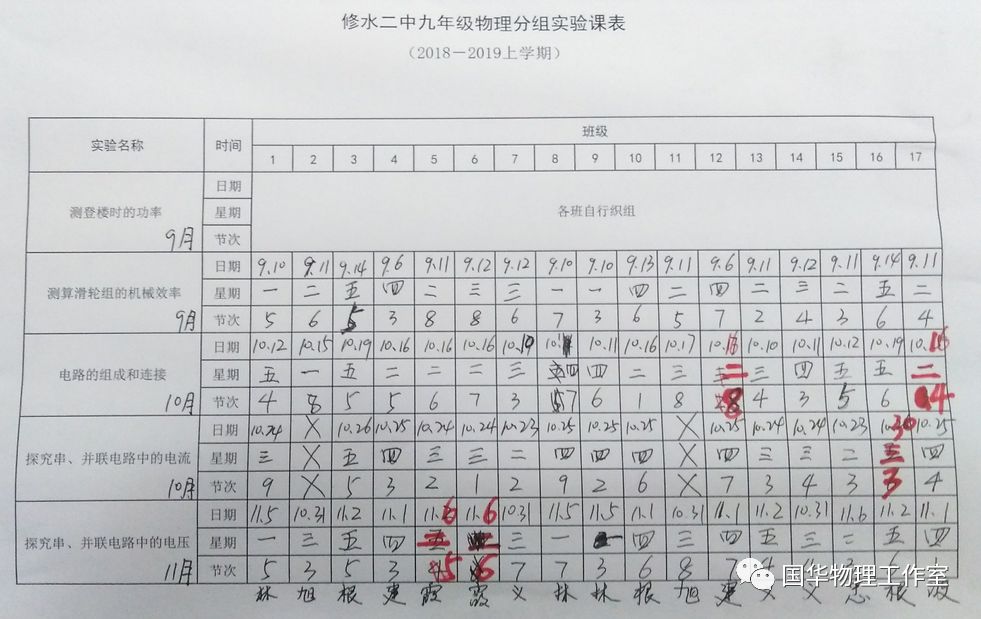 修水二中九年级物理分组实验课表
(2018-2019上学期)
实验名称 时间 班级
1 2 3 4 5 6 7 8 9 10 11 12 13 14 15 16 17
测登楼时的功率 9月 日期 星期 节次 各班自行织组
测算滑轮组的机械效率 9月
日期 9.10 9.11 9.14 9.6 9.11 9.12 9.12 9.10 9.10 9.13 9.11 9.6 9.11 9.12 9.11 9.14 9.11
星期 一 二 五 四 二 三 三 一 一 四 二 四 二 三 二 五 二
节次 5 6 5 3 8 8 6 7 3 6 5 7 2 4 3 6 4
电路的组成和连接 10月
日期 10.12 10.15 10.19 10.16 10.16 10.16 10.11 10.11 10.16 10.17 10.16 10.10 10.11 10.12 10.19 10.16
星期 五 一 五 二 二 二 三 四 四 二 三 二 三 四 五 五 二
节次 4 8 5 5 6 7 3 7 6 1 8 8 4 3 5 6 4
探究串、并联电路中的电流 10月
日期 10.24 X 10.26 10.25 10.24 10.24 10.23 10.25 10.25 10.25 X 10.25 10.24 10.24 10.23 10.30 10.25
星期 三 X 五 四 三 三 二 四 四 四 X 四 三 三 二 三 四
节次 9 X 5 3 2 1 2 9 2 6 X 7 3 4 3 3 4
探究串、并联电路中的电压 11月
日期 11.5 10.31 11.2 11.1 11.6 11.6 10.31 11.5 11.5 11.1 10.31 11.1 11.2 10.31 11.6 11.2 11.1
星期 一 三 五 四 二 三 一 一 四 三 四 五 三 二 五 四
节次 5 3 5 3 5 6 7 7 3 6 8 7
林 旭 根 建 霞 霞 义 林 林 根 旭 建 义 义 志 根 霞
国华物理工作室